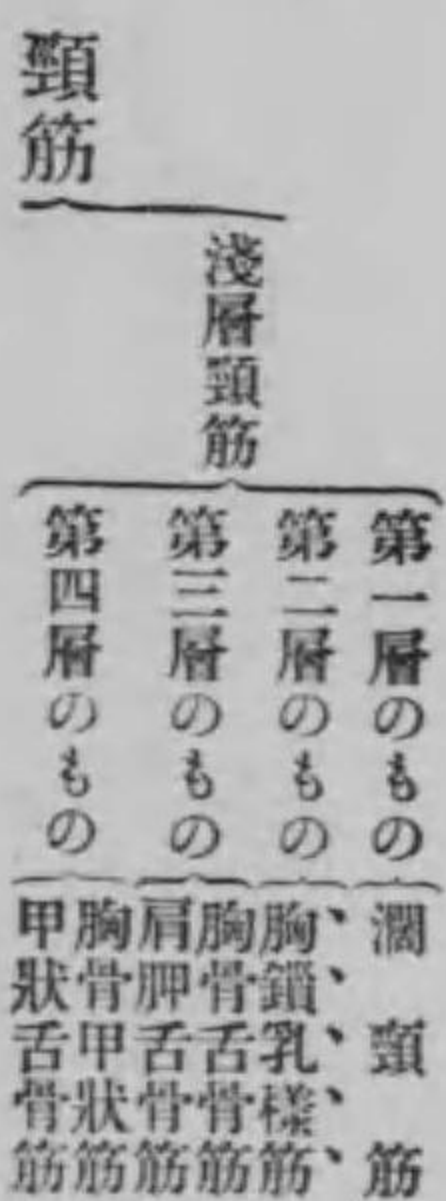 頸筋
淺層頸筋
第一層のもの
濶頸筋
第二層のもの
胸鎖乳樣筋
第三層のもの
胸骨舌骨筋
肩胛舌骨筋
第四層のもの
胸骨甲狀筋
甲狀舌骨筋